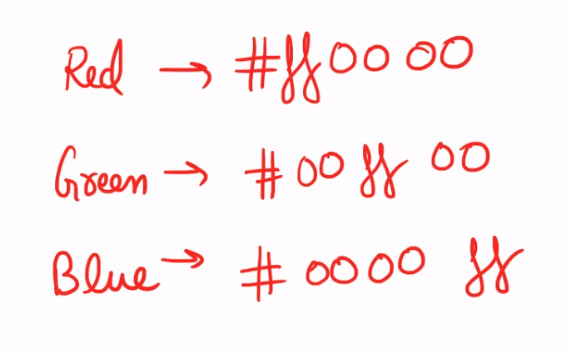 Red → #ff0000
Green → #00ff00
Blue → #0000ff